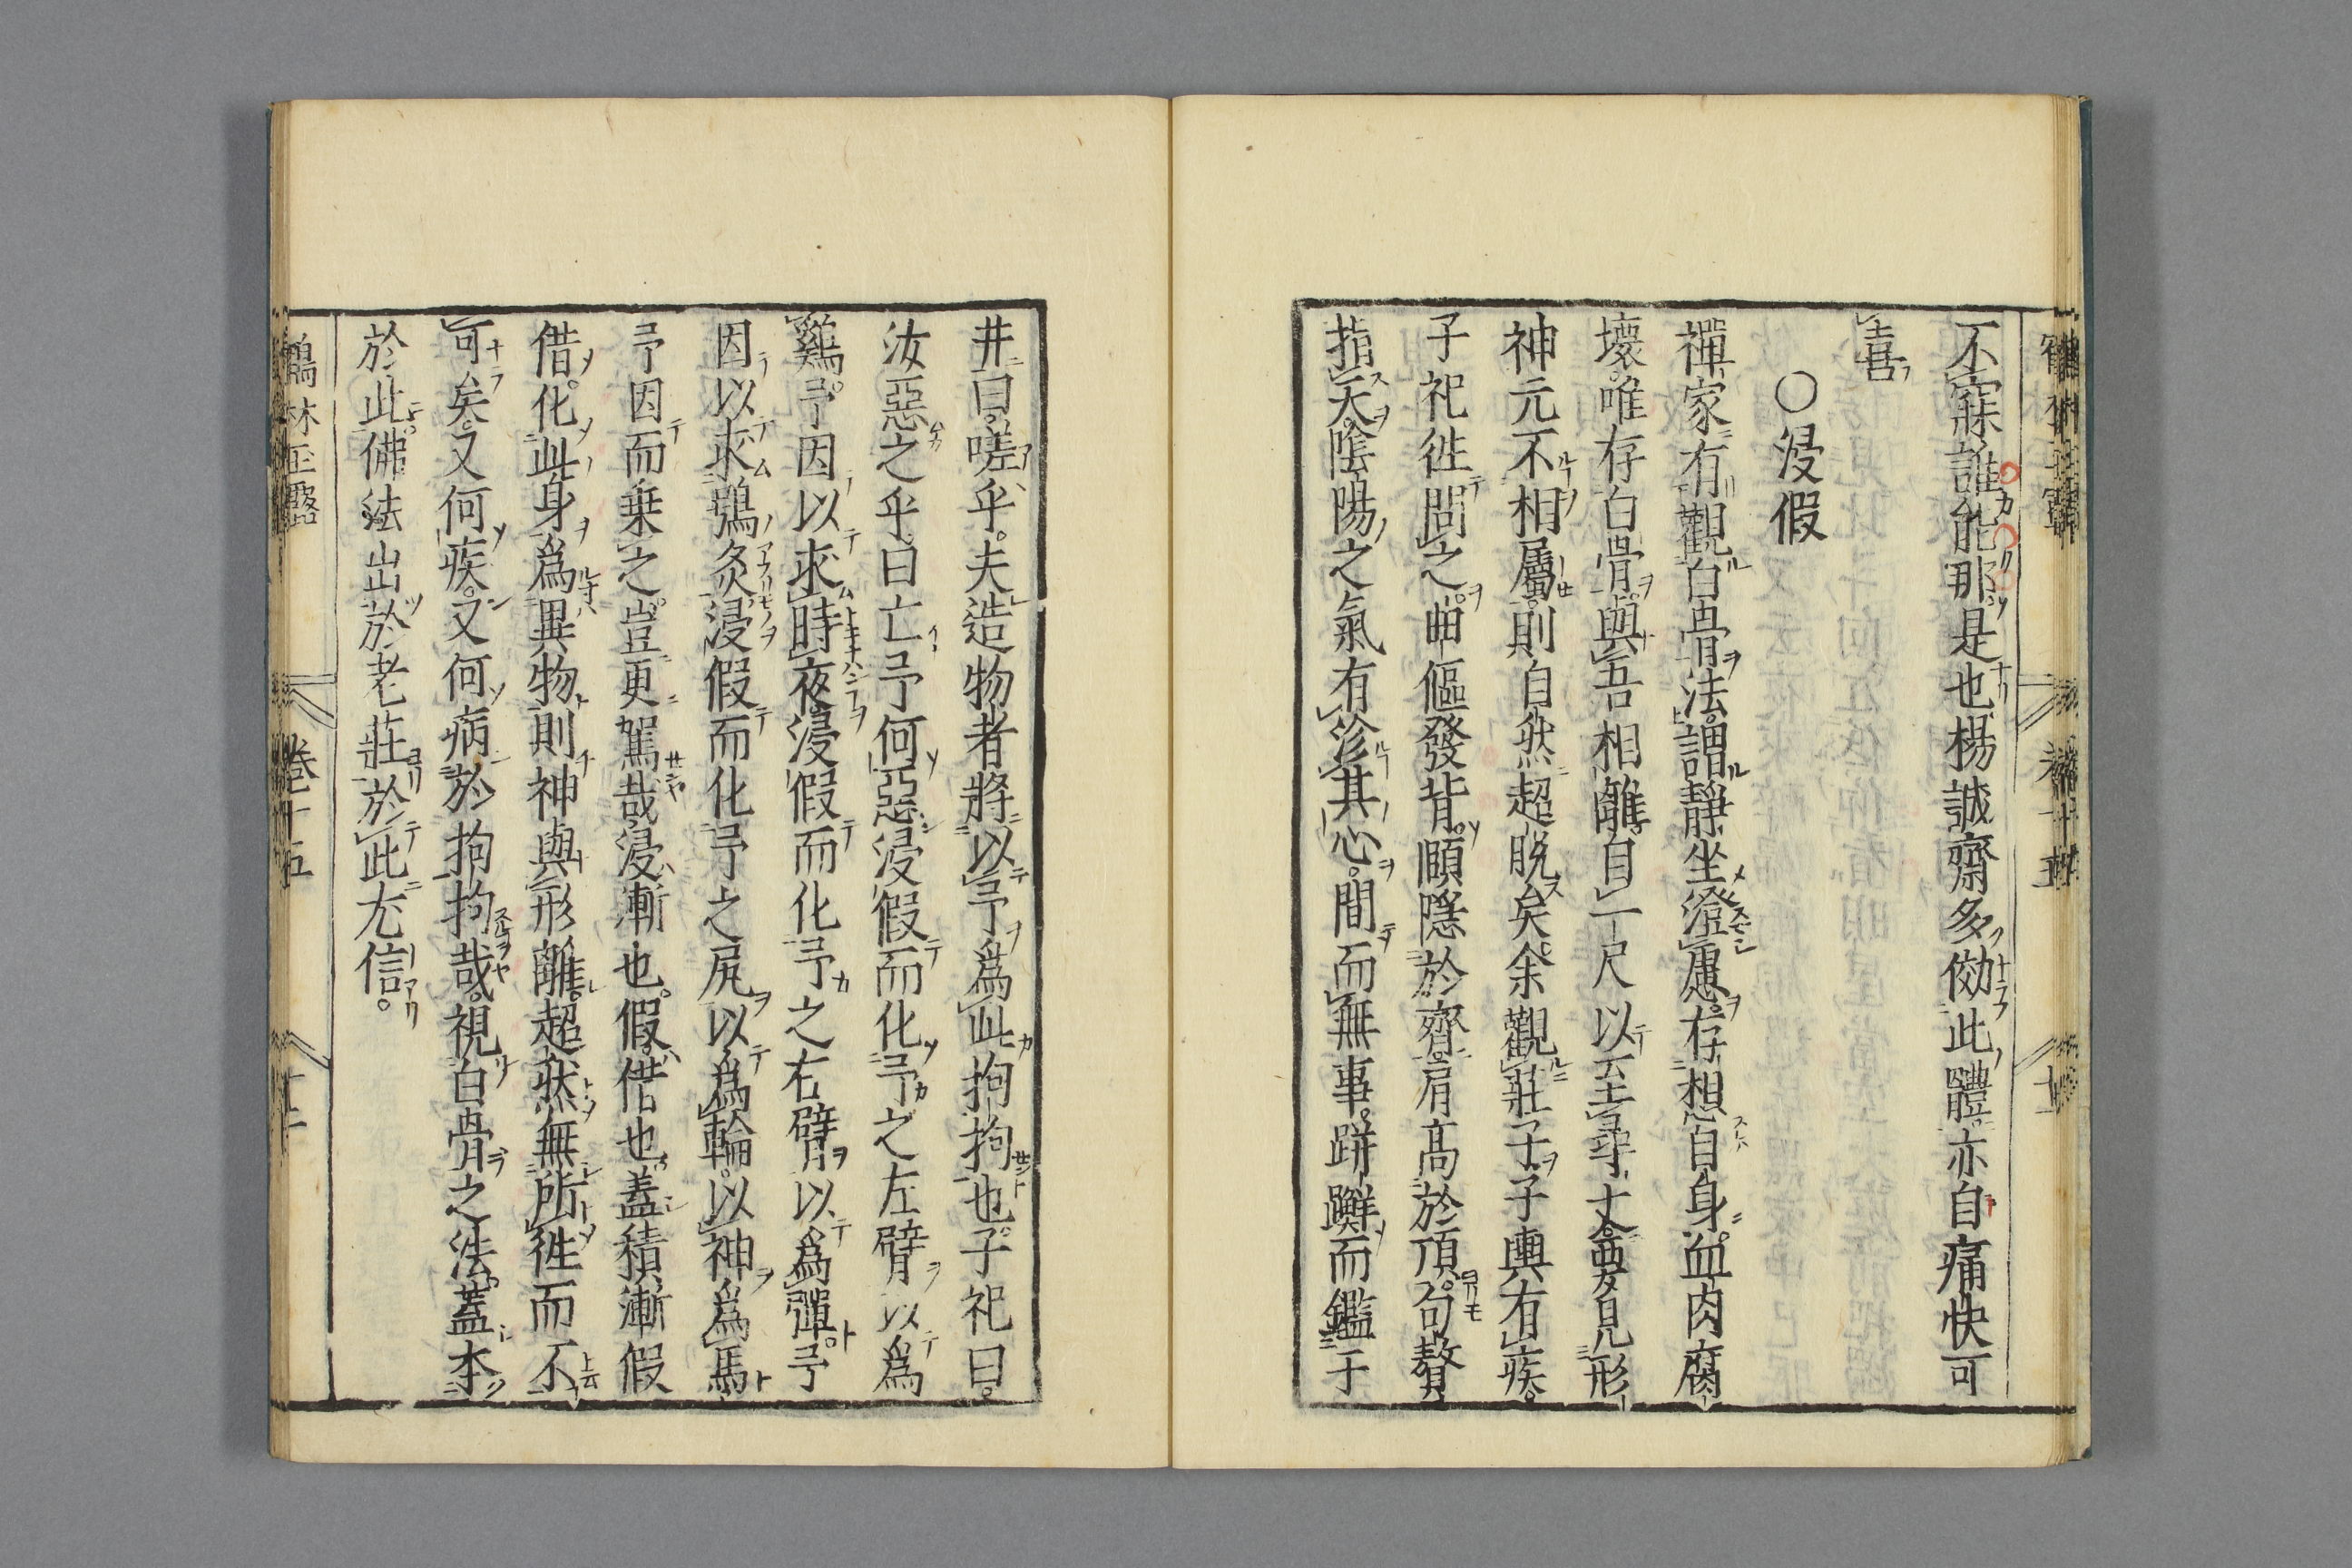 不寐誰能那是也楊誠齋多傚此體亦自痛快可
喜
○浸假
禪家有觀白骨法謂靜坐澄慮存想自身血肉腐
壞唯存白骨與吾相離自一尺以云至尋丈要見形
神元不相屬則自然超脫矣余觀莊子子輿有疾
子祀徃問之曲傴發背頤隱於齊肩高於頂句贅
指天陰陽之氣有沴其心間而無事跰𨇤而鑑于
井曰嗟乎夫造物者將以予爲此拘拘也子祀曰
汝惡之乎曰亡予何惡浸假而化予之左臂以爲
雞予因以求時夜浸假而化予之右臂以爲彈予
因以求鴞炙浸假而化予之尻以爲輪以神爲馬
予因而乗之豈更駕哉浸漸也假借也蓋積漸假
借化此身爲異物則神與形離超然無所徃而不
可矣又何疾又何病於拘拘哉視白骨之法蓋本
於此佛法出於老莊於此尤信
鶴林玉露 卷十五 十二